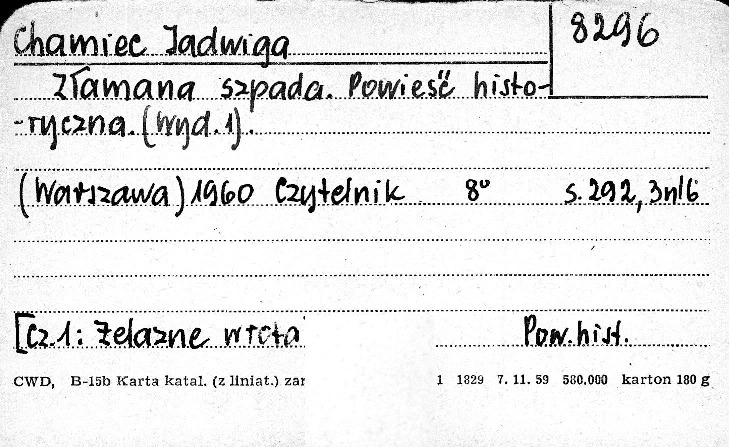 Chamiec Jadwiga
8296
Złamana szpada. Powieść histo-
-ryczna. (Wyd.1).
(Warszawa) 1960 Czytelnik 8° s. 292, 3nlb
[Cz.1: Żelazne wrota
Pow. hist.
CWD, B-15b Karta katal. (z liniat.) zar
1 1829 7. 11. 59 580.000 karton 180 g